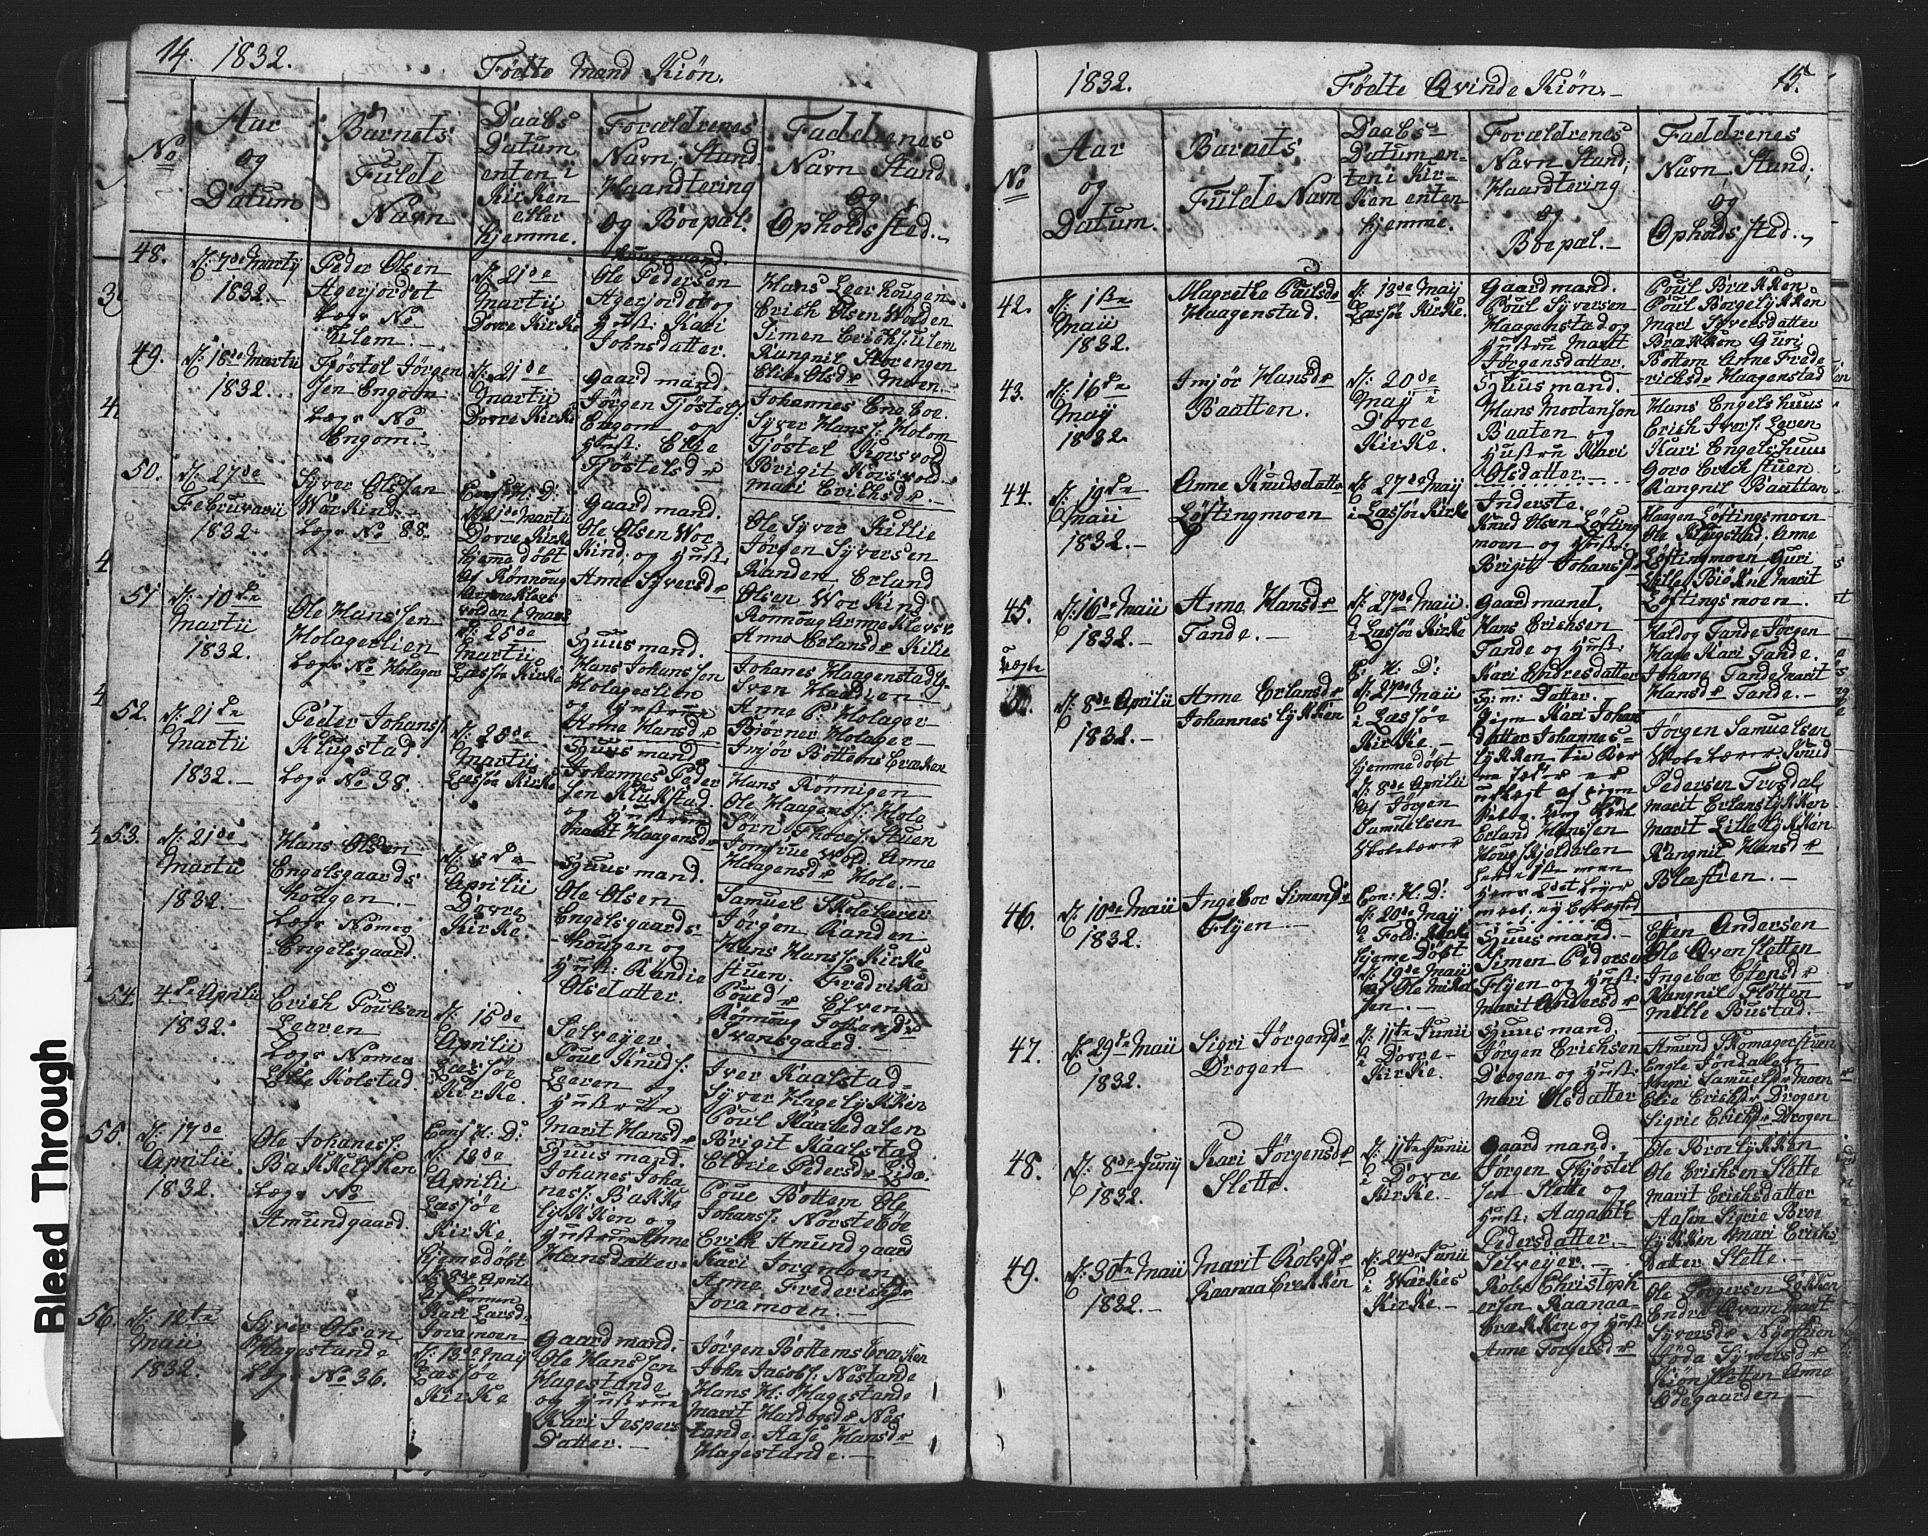 14. 1832. Födte Mand Kiön.
No
Aar
og
Datum
Barnets
Fulde
Navn
Daabs
Datum
enten i
Kirken
eller
hjemme.
Forældrenes
Navn, Stand,
Haandtering
og Boepæl.
Faddrenes
Navn Stand
og
Opholds sted.
48.
d: 7de Marty
1832.
Peder Olsen
Agerjordet
Lægs No
Ulem.
d: 21de
Martii
Dovre Kirke
Huusmand.
Ole Pedersen
Agerjordet og
Hust: Kari
Johnsdatter.
Hans Leerhougen
Erich Olsen Wolden
Simen Erichs: Ulem
Rangnil Storengen
Elie Olsdr Moren.
49.
d: 18de Martii
1832.
Tjöstel Jörgen
sen Engom
Lægs No
Engom.
d: 21de
Martii
Dovre Kirke
Gaardmand.
Jörgen Tjöstels:
Engom og
Hust: Elie
Tjöstelsdr
Johannes Eneboe.
Syver Hans: Holom
Tjöstel Korsvold
Brigit Korsvold.
Mari Erichsdr.
50.
d: 27de
Februarii
1832
Syver Olssen
Workind.
Lægs No 88.
Conf: H: D:
d: 21de Martii
Dovre Kirke
hjemmedöbt
af Rönnoug
Gaardmand.
Ole Olsen Wor
Kind, og Hust:
Anne Syversdr
Ole Syver Killie
Jörgen Syversen
Randen Erland
Olsen WorKind
Anne Erlansdr Kilie
51
d: 10de
Martii
1832.
Ole Hanssen
Holagerlien
Lægs No Holager
d: 25de
Martii
Læssöe Kirke
Huusmand.
Hans Johanssen
Holagerlien
og Hustrue
Anne Hansdr
Johanes Haagenstad
Sven Haadien
Anne P: Holager
Björner Holager
Imjör Bottemsbrækken
52.
d: 21de
Martii
1832.
Peder Johans:
Klugstad
Lægs No 38.
d: 28de
Martii
Læssöe Kirke
Huusmand.
Johannes Peder
sen Klukstad
og Hustrue
Marit Haagensdr
Hans Rönnigen
Ole Haagens: Hole
Sörn Thores: Stuen
Jomfrue Wold, Anne
Haagensdr Hole.
53.
d: 21de
Martii
1832.
Hans Olsen
Engelsgaards
hougen.
Lægs No
Engelsgaard.
d: 8de
Aprilii
Dovre
Kirke.
Huusmand.
Ole Olsen
Engelsgaards-
hougen og
Hust: Randie
Olsdatter.
Samuel Skolelærer
Jörgen Randen
Hans Hans: Kirke
stuen, Fredrika
Pouedr Elven
Rönnoug
Ivensgaard.
54.
4de Aprilii
1832.
Erich Poulsen
Leeren
Lægs Nomer
Lille Kolstad
d: 15de
Aprilii
Læssöe
Kirke.
Selveyer.
Poue Knuds:
Leeren og
Hustrue
Marit Hansdr
Iver Kaalstad
Syver Hagelykken
Poul Haatedalen
Brigit Kaalstad
Eldrie Pedersdr Eide.
55.
d: 17de
Aprilii
1832.
Ole Johanes:
Bakkelykken
Lægs No
Amundgaard.
Conf: H: D:
d: 13de
Aprilii
Læssöe
Kirke.
hjemedöbt
d: 8de Aprilii
Kari Larsdr
Joramoen.
Huusmand.
Johanes Joha
nes: Bakke
lykken og
Hustrue Anne
Hansdatter.
Poue Bottem Ole
Johans: Norsteboe
Erich Amundgaard
Kari Joramoen
Anne Fredericksdr
Joramoen.
56.
d: 12te
Maii
1832.
Syver Olsen
Hagestande
Lægs No 36.
d: 13de May
Læssöe
Kirke
Gaardmand.
Ole Hanssen
Hagestande
og Hustrue
Kari Jespers
Datter.
Jörgen Bottemsbrækken
John Jacobs: Nostande
Hans H: Hagestande
Marit Hardogsdr Nos
tande. Aase Hansdr
Hagestande.
1832. Födte Qvinde Kiön. 15.
No
Aar
og
Datum.
Barnets
Fulde Navn
Daabs-
Datum en-
ten i Kir-
Ken enten
hjemme.
Forældrenes
Navn Stand,
Haandtering
og
Boepæl.
Faddrenes
Navn Stand,
og
Opholds sted.
42.
d: 1ste
Maii
1832.
Magrethe Pouelsdr
Haagenstad.
d: 13de May
Læssöe Kirke.
Gaardmand.
Poul Syversen
Haagenstad og
Hustru Marit
Jörgensdatter.
Poul Brækken
Poul Borgelykken
Mari Syversdatter
Brækken Guri
Bottem Anne Frede
richsdr Haagenstad
43.
d: 16de
May
1832.
Imjör Hansdr
Baatten.
d: 20de
May i
Dovre
Kirke.
Huusmand.
Hans Mortenson
Baaten og
Hustru Kari
Olsdatter.
Hans Engelshuus
Erich Ivers: Leren
Kari Engelshuus
Goro Erichstuen
Rangnil Baatten
44.
d: 19de
Maii
1832.
Anne Knudsdatter
Löftingmoen
d: 27de May
i Læssöe Kirke
Inderste.
Knud Olsen Löfting
moen og Hust:
Brigit Johansdr
Haagen Löftingsmoen
Ole Klugstad. Anne
Löftingmoen Guri
Lille Björkne Marit
Löftingsmoen.
45.
d: 16de Maii
1832.
Anne Hansdr
Tande.
d: 27de Maii
i Læssöe Kirke
Gaardmand.
Hans Erichsen
Tande og Hust:
Kari Endresdatter
Haldog Tande Jörgen
Hage Kari Tande.
Johane Tande Marit
Hansdr Tande.
Uægte
d: 8de Aprilii
1832.
Anne Erlansdr
Johanneslykken
C: H: D:
d: 27de Maii
i Læssöe
Kirke.
hjemmedöbt
d: 8de Aprilii
af Jörgen
Samuelsen
Skolelærer
Pigm: Datter.
Pigm: Kari Johans
datter Johannes-
lykken til Bar
ne fader er
udlagt af Pigen
Erland Hanssen
Jörgen Samuelsen
Skolelærer. Knud
Pedersen Trosdal
Marit Erlanslykken
Marit Lillelykken
Rangnil Hansdr
Blæstien.
46.
d: 10de Maii
1832.
Ingebor Simensdr
Flyen
Con: H: D:
d: 20de May
i Fold: Kirke
hjemedöbt
d: 19de Maii
af Ole Mikel
sen.
Huusmand.
Simen Pedersen
Flyen og Hust:
Marit Andersdr
Esten Andersen
Ole Qvenstetten
Ingebor Estensdr
Rangnil Flötten
Melle Bustad.
47.
d: 29de Maii
1832.
Sigri Jörgensdr
Drogen
d: 11te Junii
i Dovre
Kirke.
Huusmand.
Jörgen Erichsen
Drogen og Hust:
Mari Olsdatter
Amund Skomagerstuen
Engle Töndalen
Ingri Samuelsdr Moen
Elie Erichsdr Drogen
Sigrie Erichsdr Drogen
48.
d: 8de Juny
1832.
Kari Jörgensdr
Slette.
d: 11te Junii
i Dovre
Kirke.
Gaardmand.
Jörgen Skjöstel
sen Slette og
Hust: Aagaath
Pedersdatter.
Ole Broelykken
Ole Erichsen Slette
Marit Erichsdatter
Aasen Sigrie Broe
lykken Mari Erichs
Datter Slette.
49.
d: 30te Maii
1832.
Marit Rolvsdr
Raanaabrekken
d: 24de Junii
i Værkes
Kirke.
Selveyer.
Rolv Christoph
ersen Raanaa-
brækken og Hust:
Anne Torgelsdr
Ole Torgersen Lökken
Endre Qvam Marit
Syversdr Nyestuen
Jöda Syversdr
Kionsletten Anne
Ödegaarden.
Bleed Through